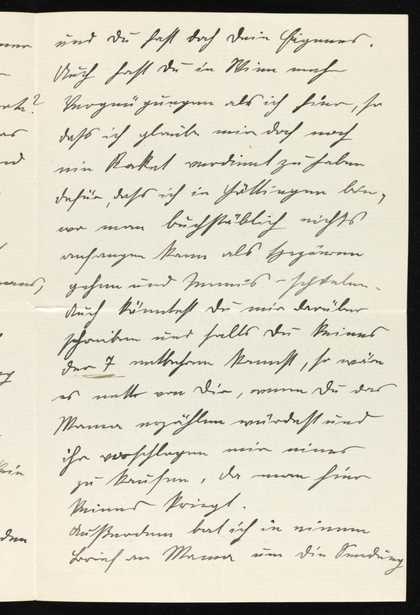 und Du hast doch Dein Eigenes.
Auch hast Du in Wien mehr
Vergnügungen als ich hier, so
daß ich glaube mir doch noch
ein Raket verdient zu haben
dafür, daß ich in Göttingen bin,
wo man buchstäblich nichts
anfangen kann als spazieren
gehen und Tennis-spielen.
Auch könntest Du mir darüber
schreiben und falls Du keines
der 7 entbehren kannst, so wäre
es nett von Dir, wenn Du das
Mama erzählen würdest und
ihr vorschlagen mir eines
zu kaufen, da man hier
keines kriegt.
Außerdem bat ich in einem
Brief an Mama um die Sendung